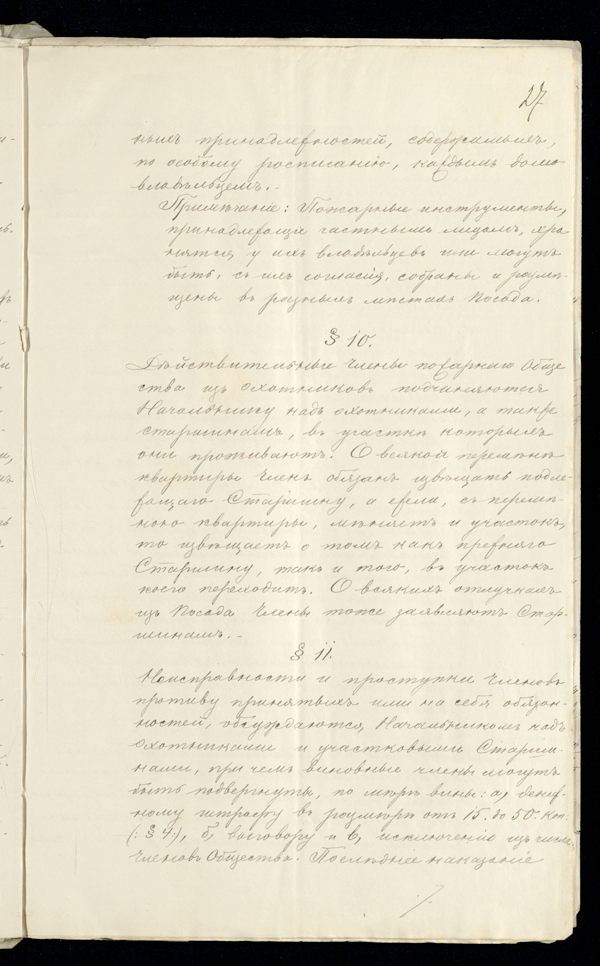 27
ныхъ принадлежностей, содержимыхъ,
по особому росписанію, каждымъ домо
владѣльцемъ.-
Примѣчаніе: Пожарные инструменты,
принадлежащіе частнымъ лицамъ, хра
нятся у ихъ владѣльцевъ или могутъ
быть, съ ихъ согласія, собраны и размѣ-
щены въ разныхъ мѣстахъ Посада.
§ 10.
Дѣйствительные Члены пожарнаго Обще
ства изъ охотниковъ подчиняются
Начальнику надъ охотниками, а также
старшинамъ, въ участкѣ которыхъ
они проживаютъ. О всякой перемѣнѣ
квартиры Членъ обязанъ извѣщать подле-
жащаго Старшину, а ежели, съ перемѣ-
ною квартиры, мѣняетъ и участокъ,
то извѣщаетъ о томъ какъ прежняго
Старшину, такъ и того, въ участокъ
коего переходитъ. О всякихъ отлучкахъ
изъ Посада Члены тоже заявляютъ Стар-
шинамъ.-
§ 11.
Неисправности и проступки Членовъ
противу принятыхъ ими на себя обязан-
ностей, обсуждаются Начальникомъ надъ
охотниками и участковыми Старши-
нами, при чемъ виновные члены могутъ
быть подвергнуты, по мѣрѣ вины: а, денеж-
ному штрафу въ размѣрѣ отъ 15. до 50. коп.
(: § 4:), б, выговору и в, исключенію изъ числа
Членовъ Общества. Послѣднее наказаніе
./.